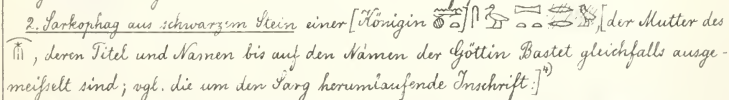 2. Sarkophag aus schwarzem Stein einer [Königin [der Mutter des
, deren Titel und Namen bis auf den Námen der Göttin Bastet gleichfalls ausge-
meißelt sind; vgl. die um den Sarg herumlaufende Inschrift.]⁴⁾